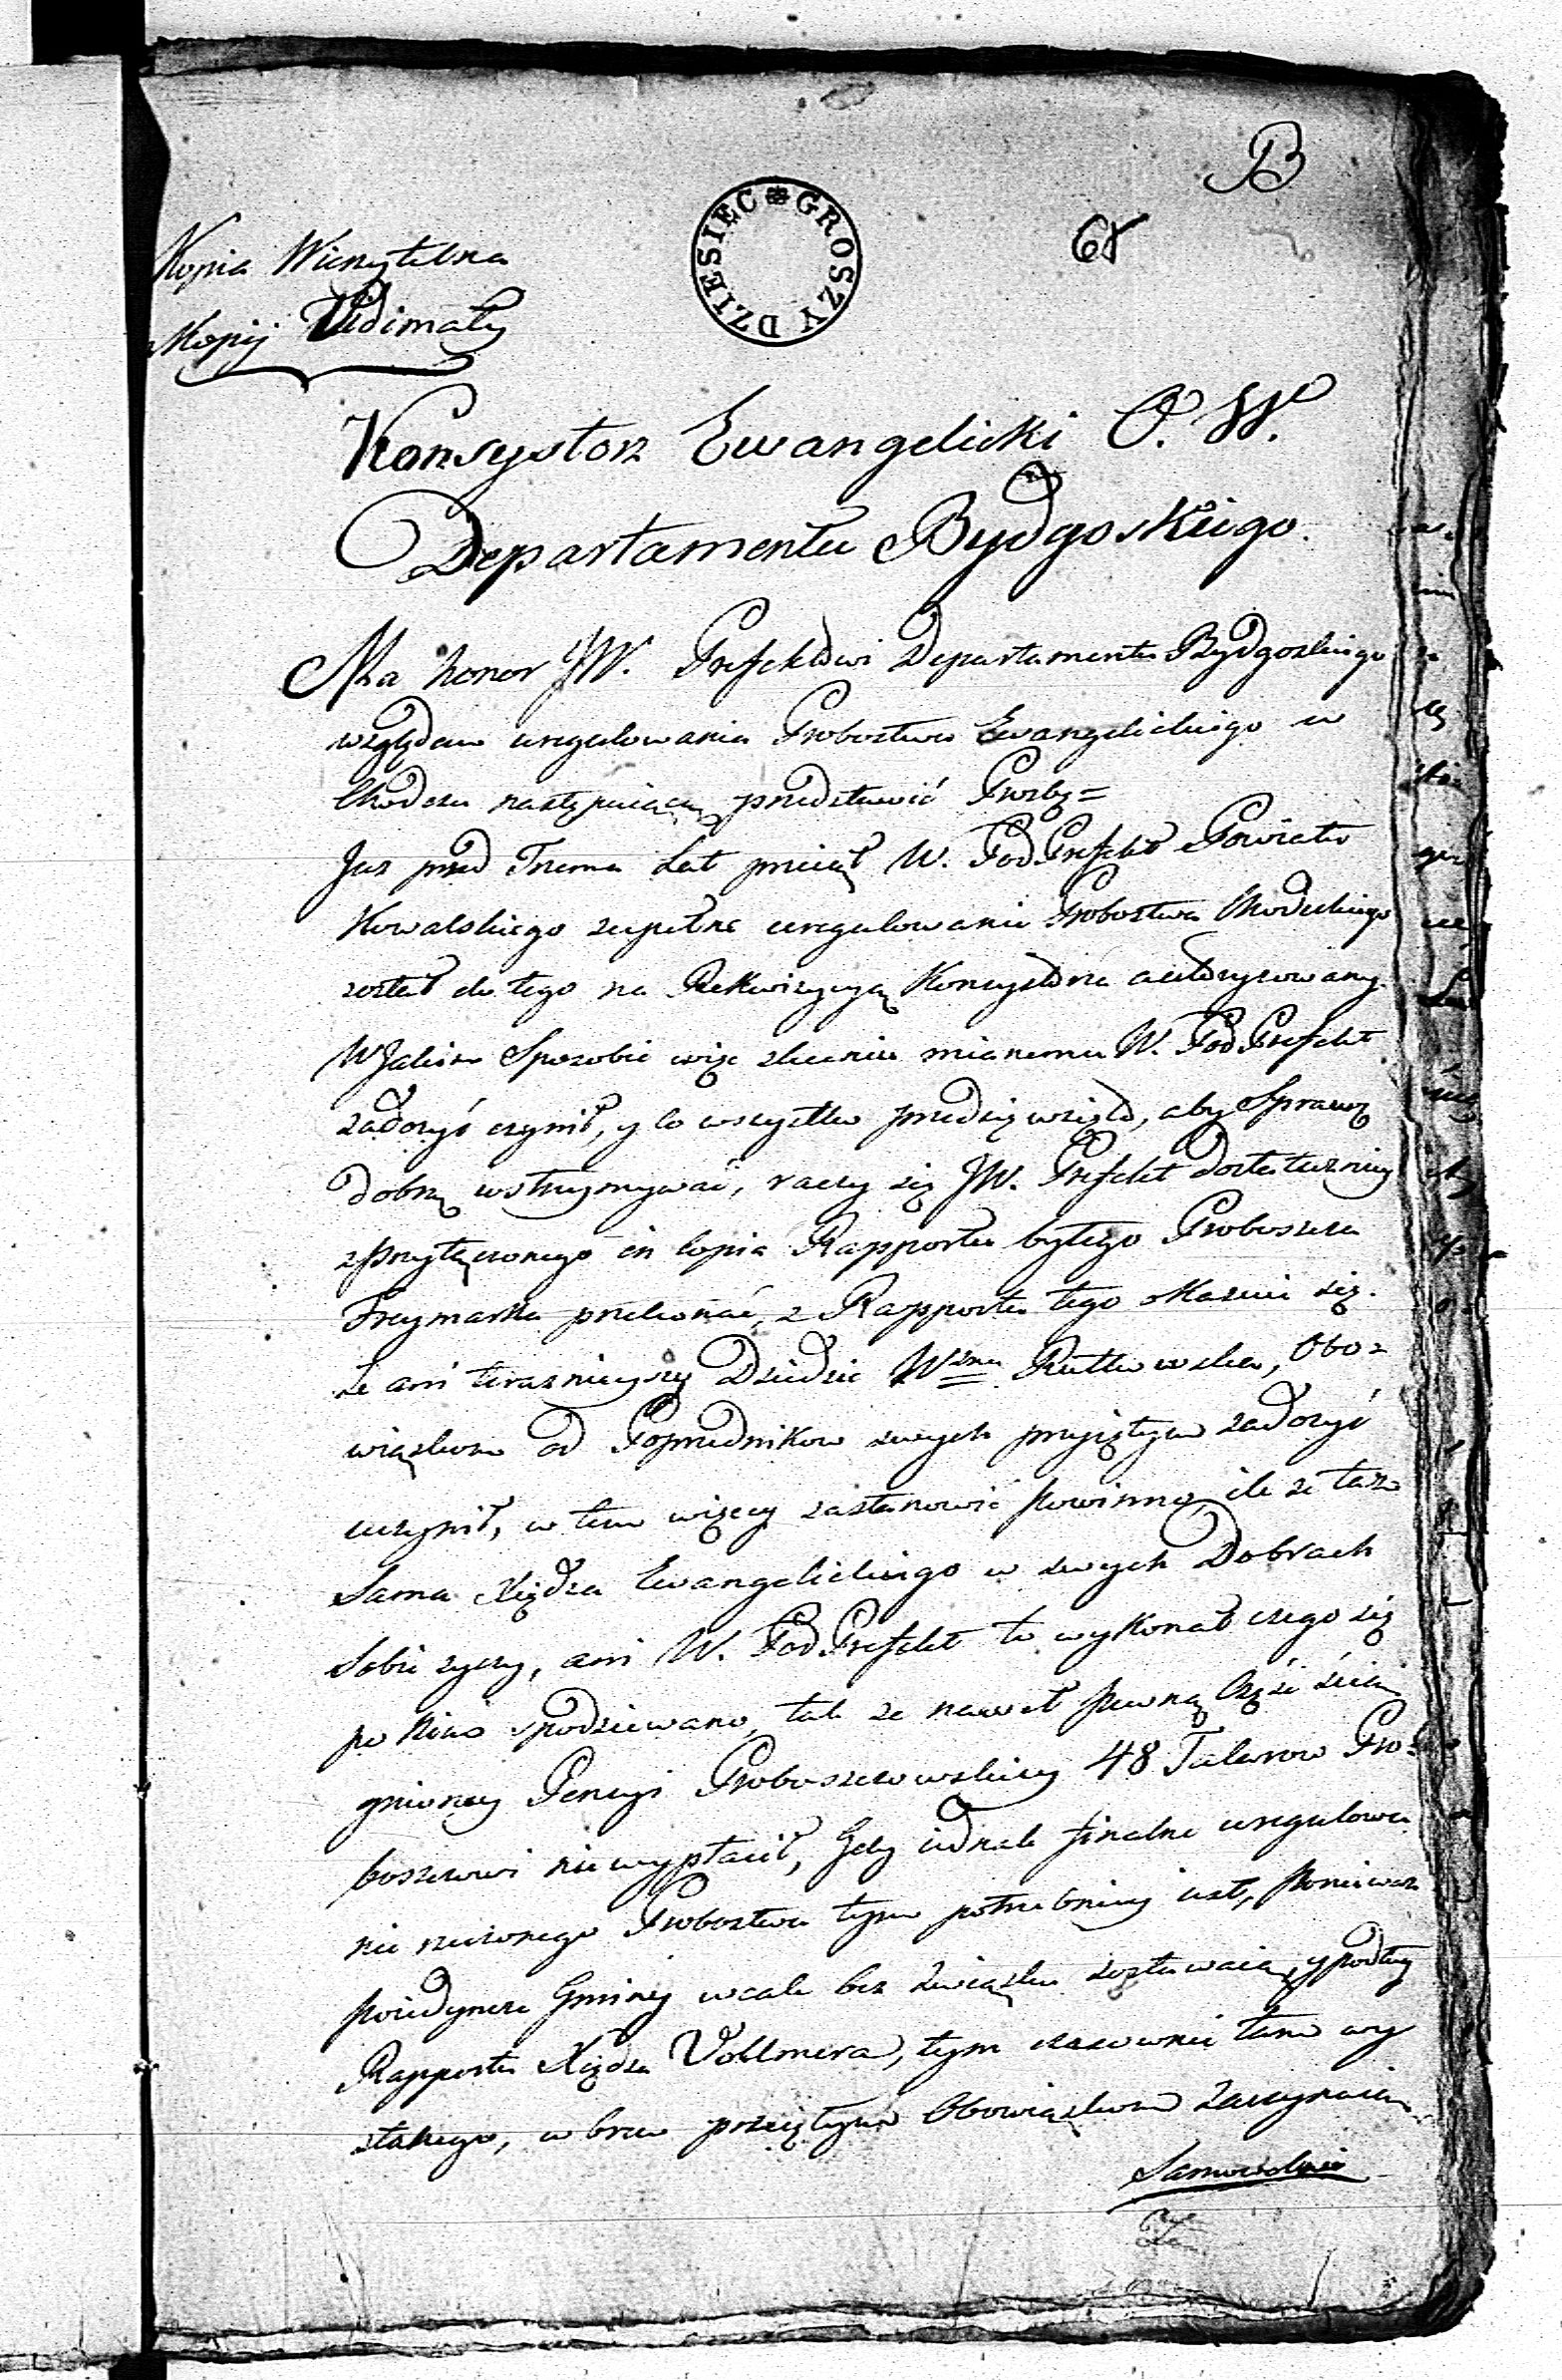 B
68
GROSZY DZIESIEC
Kopia Wierzytelna
Kopij Vidimaty
Konsystorz Ewangelicki O. W.
Departamentu Bydgoskiego.
Ma honor JW. Prefektowi Departamentu Bydgoskiego
względem uregulowania Probostwa Ewangelickiego w
Chodczu następuiącą przedstawić Prozbę =
Juz przed Trzema Lat W. PodPrefekt Powiatu
Kowalskiego zupełne uregulowanie Probostwa Chodeckiego
został do tego na Rekwizycyą Konsystorza autoryzowany.
W Jakim Sposobie więc zleceniu mianemu W. PodPrefekt
zadosyć czynił, y to wszystko przedsięwziął, aby Sprawę
dobrą wstrzymywać, raczy się JW. Prefekt dostateczniey
z przyłączonego in copia Rapportu byłego Proboszcza
Freymarka przekonać, z Rapportu tego okazuie się.
że ani teraznieyszy Dziedzic Wzna Rutkowska, Obo=
wiązkom od Poprzednikow swych przyiętym zadosyć
uczynił, w tem więcey zastanowić powinno, ile że taż
Sama Xiędza Ewangelickiego w swych Dobrach
Sobie życzy, ani W. PodPrefekt to wykonał czego się
po Nim spodziewano, tak że nawet pewną Część ścią
gnioney Pensyi Proboszczowskiey 48 Talarow Pro=
boszczowi niewypłacił, Gdy iednak finalne uregulowa
nie rzeczonego Probostwa tym potrzebniey iest, ponieważ
poiedyncze Gminy wcale bez Związku zostawaią, y podług
Rapportu Xiędza Vollmera, tym czasownie tam wy
słanego, w brew przyiętym Obowiązkom zaczynaią
Samowolnie